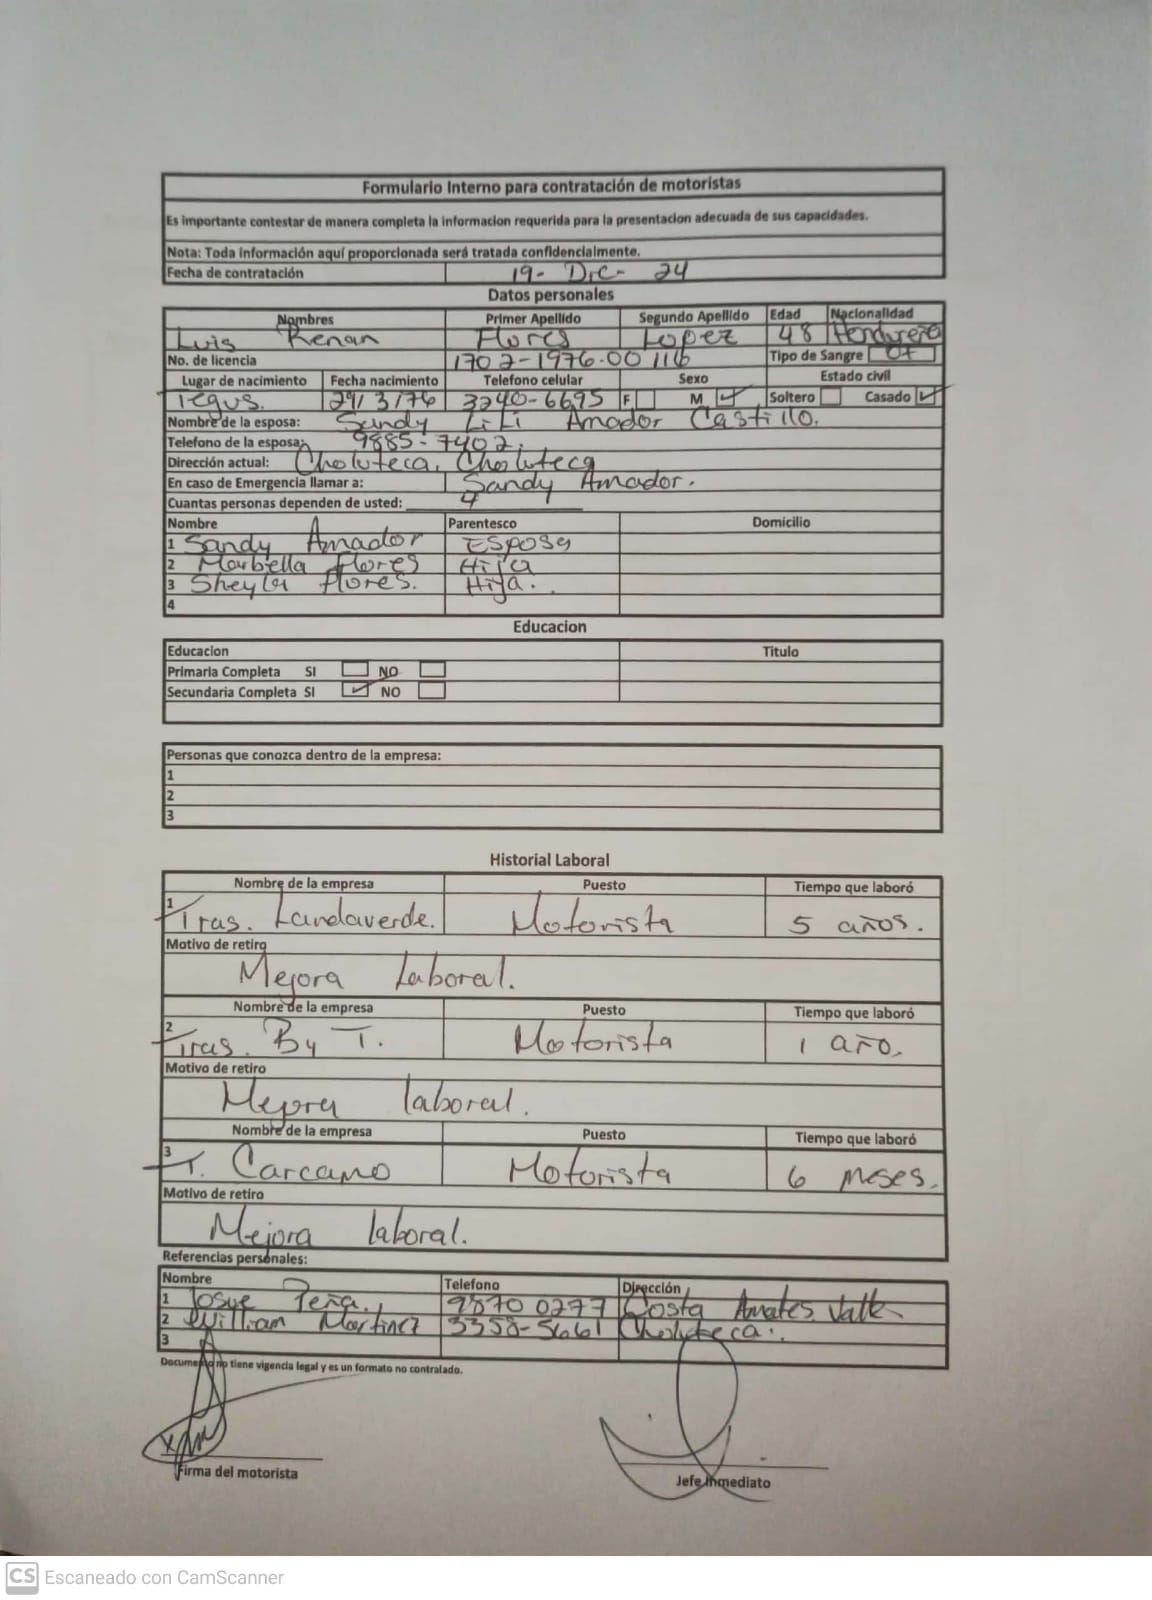 Formulario Interno para contratación de motoristas
Es importante contestar de manera completa la informacion requerida para la presentacion adecuada de sus capacidades.
Nota: Toda información aquí proporcionada será tratada confidencialmente.
Fecha de contratación 19- Dic- 24
Datos personales
Nombres Primer Apellido Segundo Apellido Edad Nacionalidad
Luis Renan Flores Lopez 48 Hondureña
No. de licencia 1702-1976-00116 Tipo de Sangre O+
Lugar de nacimiento Fecha nacimiento Telefono celular Sexo Estado civil
Tegus. 29/3/76 3240-6695 F M Soltero Casado
Nombre de la esposa: Sandy Lili Amador Castillo.
Telefono de la esposa: 9885-7402.
Dirección actual: Choluteca, Choluteca
En caso de Emergencia llamar a: Sandy Amador.
Cuantas personas dependen de usted: 4
Nombre Parentesco Domicilio
1 Sandy Amador Esposa
2 Marbella Flores Hija
3 Sheyla Flores. Hija.
4
Educacion
Educacion Titulo
Primaria Completa SI NO
Secundaria Completa SI NO
Personas que conozca dentro de la empresa:
1
2
3
Historial Laboral
Nombre de la empresa Puesto Tiempo que laboró
1 Tras. Landaverde. Motorista 5 años.
Motivo de retiro
Mejora Laboral.
Nombre de la empresa Puesto Tiempo que laboró
2 Tras. By T. Motorista 1 año.
Motivo de retiro
Mejora laboral.
Nombre de la empresa Puesto Tiempo que laboró
3 T. Carcamo Motorista 6 meses.
Motivo de retiro
Mejora laboral.
Referencias personales:
Nombre Telefono Dirección
1 Josue Peña. 9870 0277 Costa Amates Valle
2 William Martinez 3358-5661 Choluteca.
3
Documento no tiene vigencia legal y es un formato no contralado.
Firma del motorista
Jefe Inmediato
CS Escaneado con CamScanner